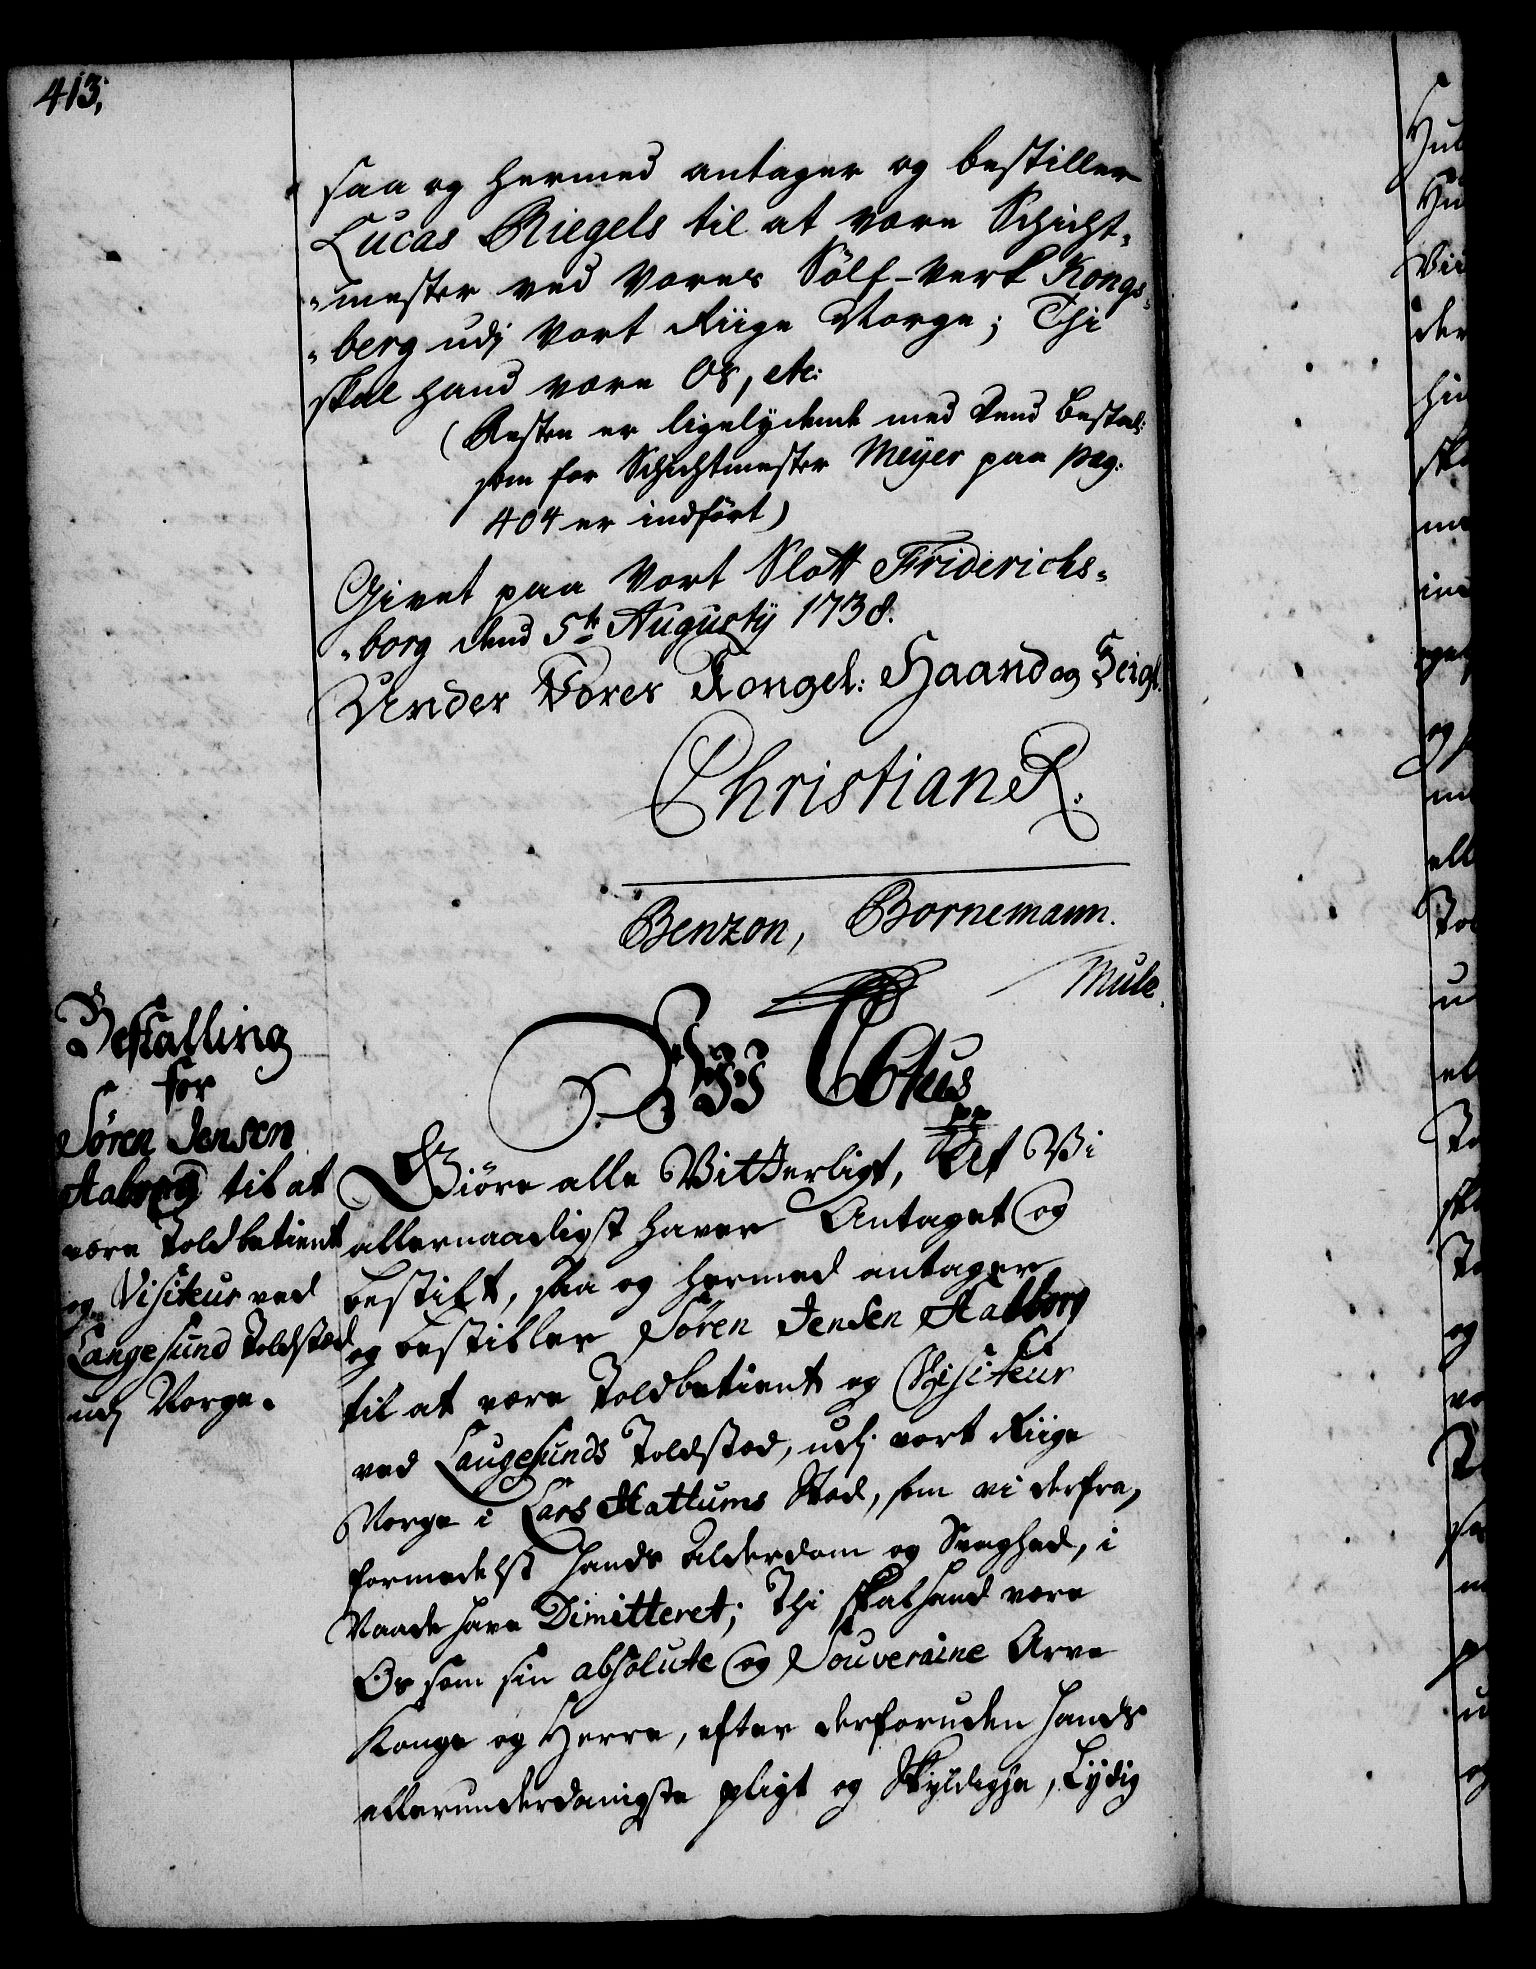 413.
saa og hermed antager og bestiller
Lucas Riegels til at være Schicht-
-mester ved Vores Sölf-Verk Kongs-
-berg udj Vort Riige Norge; Thi
skal hand være Os, etc:
(Resten er ligelydende med dend Bestal:
som for Schichtmester Meÿer paa pag:
404 er indfört)
Givet paa Vort Slott Friderichs-
-borg dend 5te Augustÿ 1738.
Under Vores Kongel: Haand og Seigl.
Christian R.
Benzon, Bornemann.
Mule.
Bestalling
for
Sören Jensen
Aaborg til at
være Toldbetient
og Visiteur ved
Langesund Toldsted
udj Norge.
Wii C 6tus
pp
Giöre alle Vitterligt, At Vi
allernaadigst haver Antaget og
bestilt, saa og hermed antager
og bestiller Sören Jensen Aalborg
til at være Toldbetient og Visiteur
ved Langesunds Toldsted, udj vort Riige
Norge i Lars Hattums Sted, som vi derfra,
formedelst hands Alderdom og Svaghed, i
Naade have Dimitteret; Thi skal hand være
Os som sin absolute og Souveraine Arve
Konge og Herre, efter derforuden hands
allerunderdanigste pligt og Skyldighe, Lÿdig